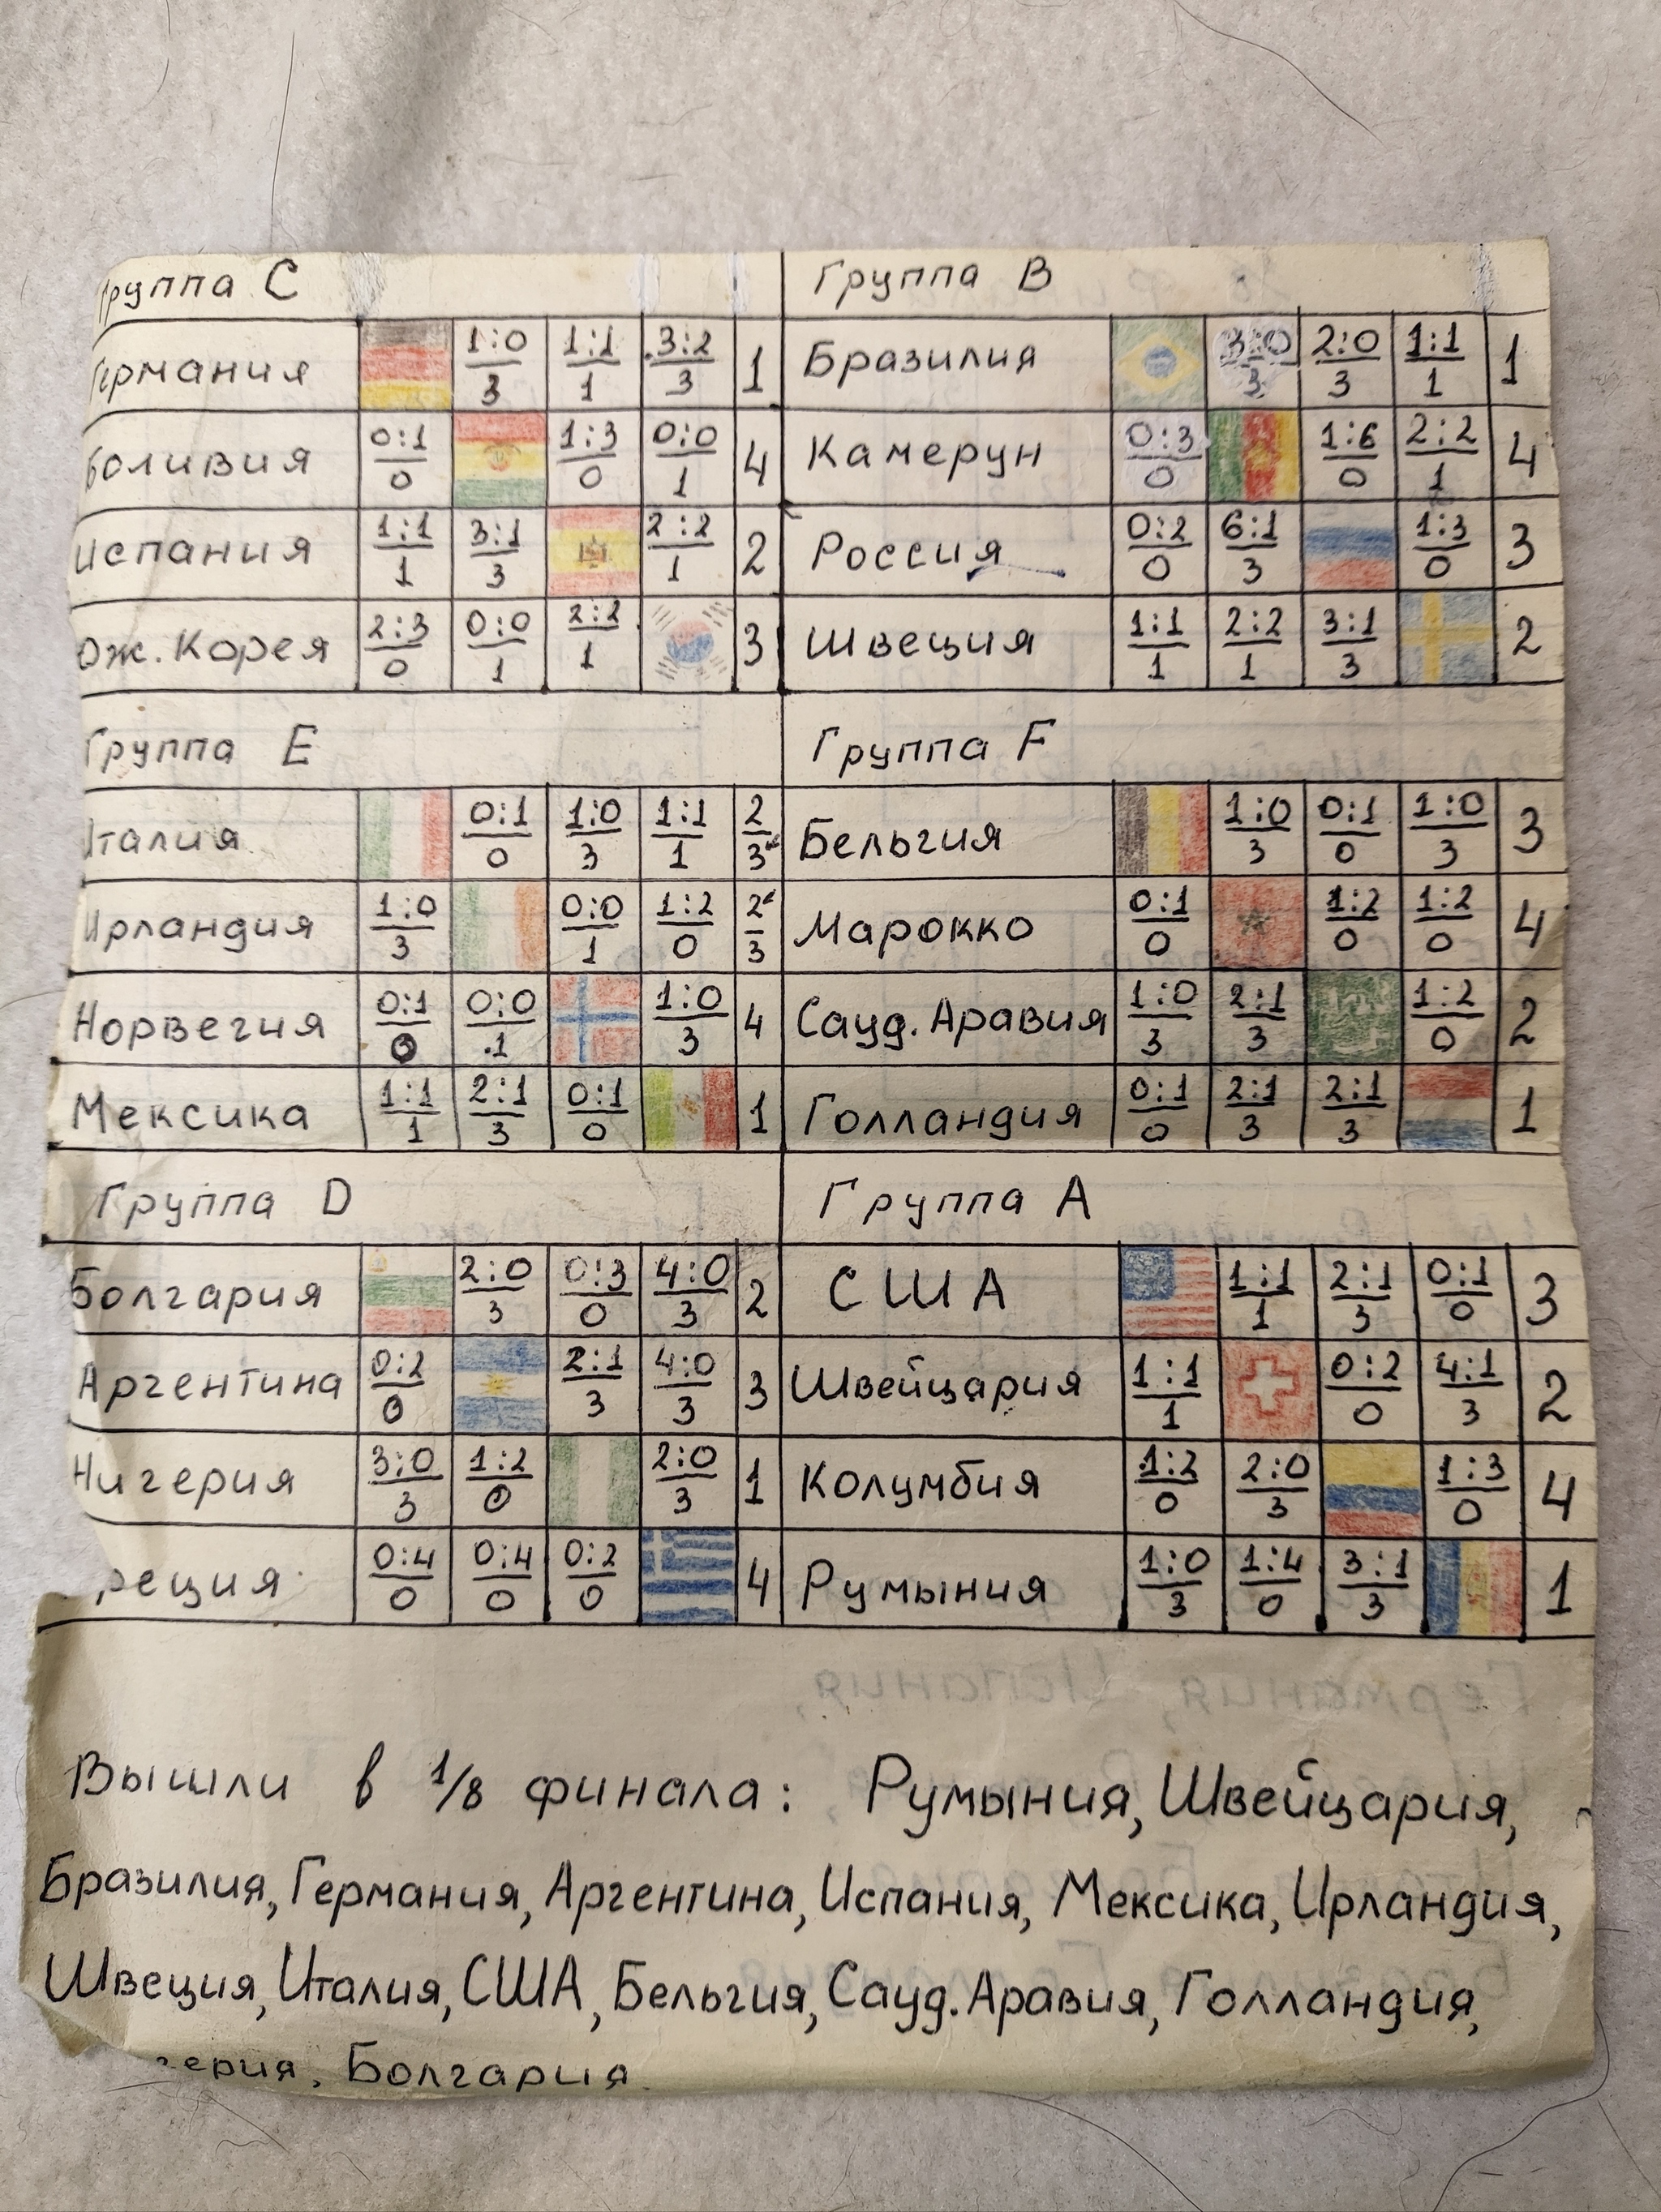 Группа C
Германия 1:0 1:1 3:2 1
3 1 3
Боливия 0:1 1:3 0:0 4
0 0 1
Испания 1:1 3:1 2:2 2
1 3 1
Юж. Корея 2:3 0:0 2:2 3
0 1 1
Группа B
Бразилия 3:0 2:0 1:1 1
3 3 1
Камерун 0:3 1:6 2:2 4
0 0 1
Россия 0:2 6:1 1:3 3
0 3 0
Швеция 1:1 2:2 3:1 2
1 1 3
Группа E
Италия 0:1 1:0 1:1 2
0 3 1 3
Ирландия 1:0 0:0 1:2 2
3 1 0 3
Норвегия 0:1 0:0 1:0 4
0 1 3
Мексика 1:1 2:1 0:1 1
1 3 0
Группа F
Бельгия 1:0 0:1 1:0 3
3 0 3
Марокко 0:1 1:2 1:2 4
0 0 0
Сауд. Аравия 1:0 2:1 1:2 2
3 3 0
Голландия 0:1 2:1 2:1 1
0 3 3
Группа D
Болгария 2:0 0:3 4:0 2
3 0 3
Аргентина 0:2 2:1 4:0 3
0 3 3
Нигерия 3:0 1:2 2:0 1
3 0 3
реция 0:4 0:4 0:2 4
0 0 0
Группа A
США 1:1 2:1 0:1 3
1 3 0
Швейцария 1:1 0:2 4:1 2
1 0 3
Колумбия 1:2 2:0 1:3 4
0 3 0
Румыния 1:0 1:4 3:1 1
3 0 3
Вышли в 1/8 финала: Румыния, Швейцария,
Бразилия, Германия, Аргентина, Испания, Мексика, Ирландия,
Швеция, Италия, США, Бельгия, Сауд. Аравия, Голландия,
герия, Болгария.